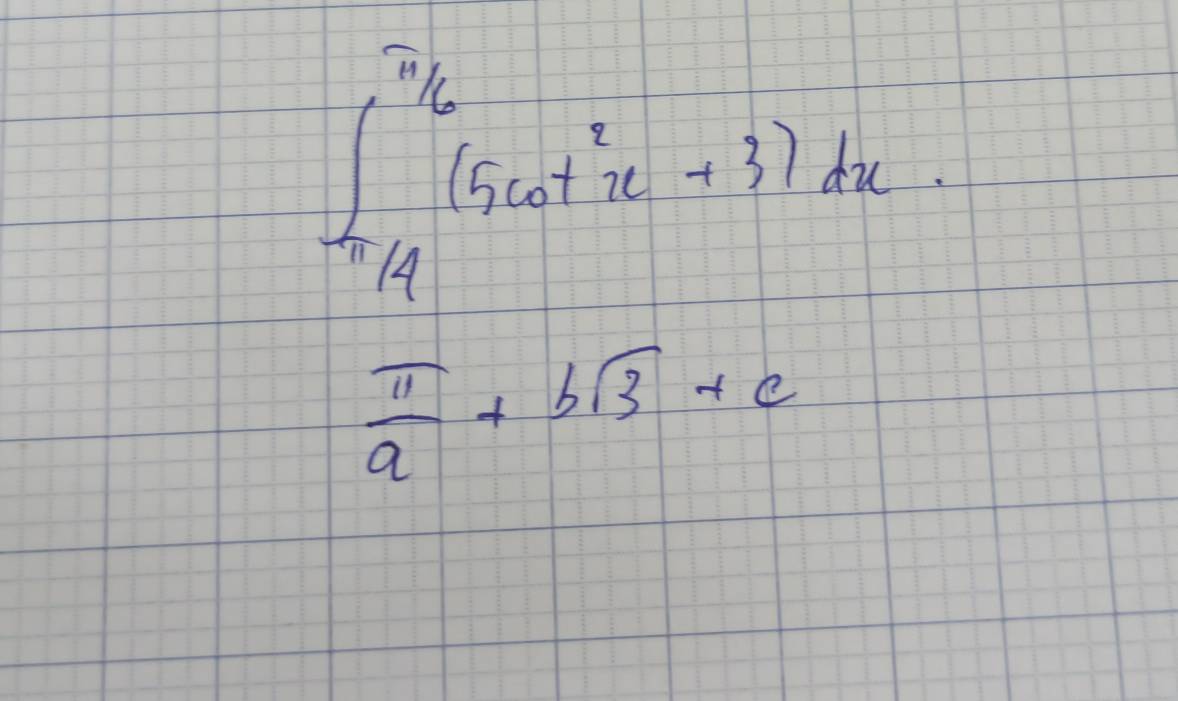 ∫_{π/4}^{π/6} (5cot²x + 3) dx.
π/a + b√3 + c